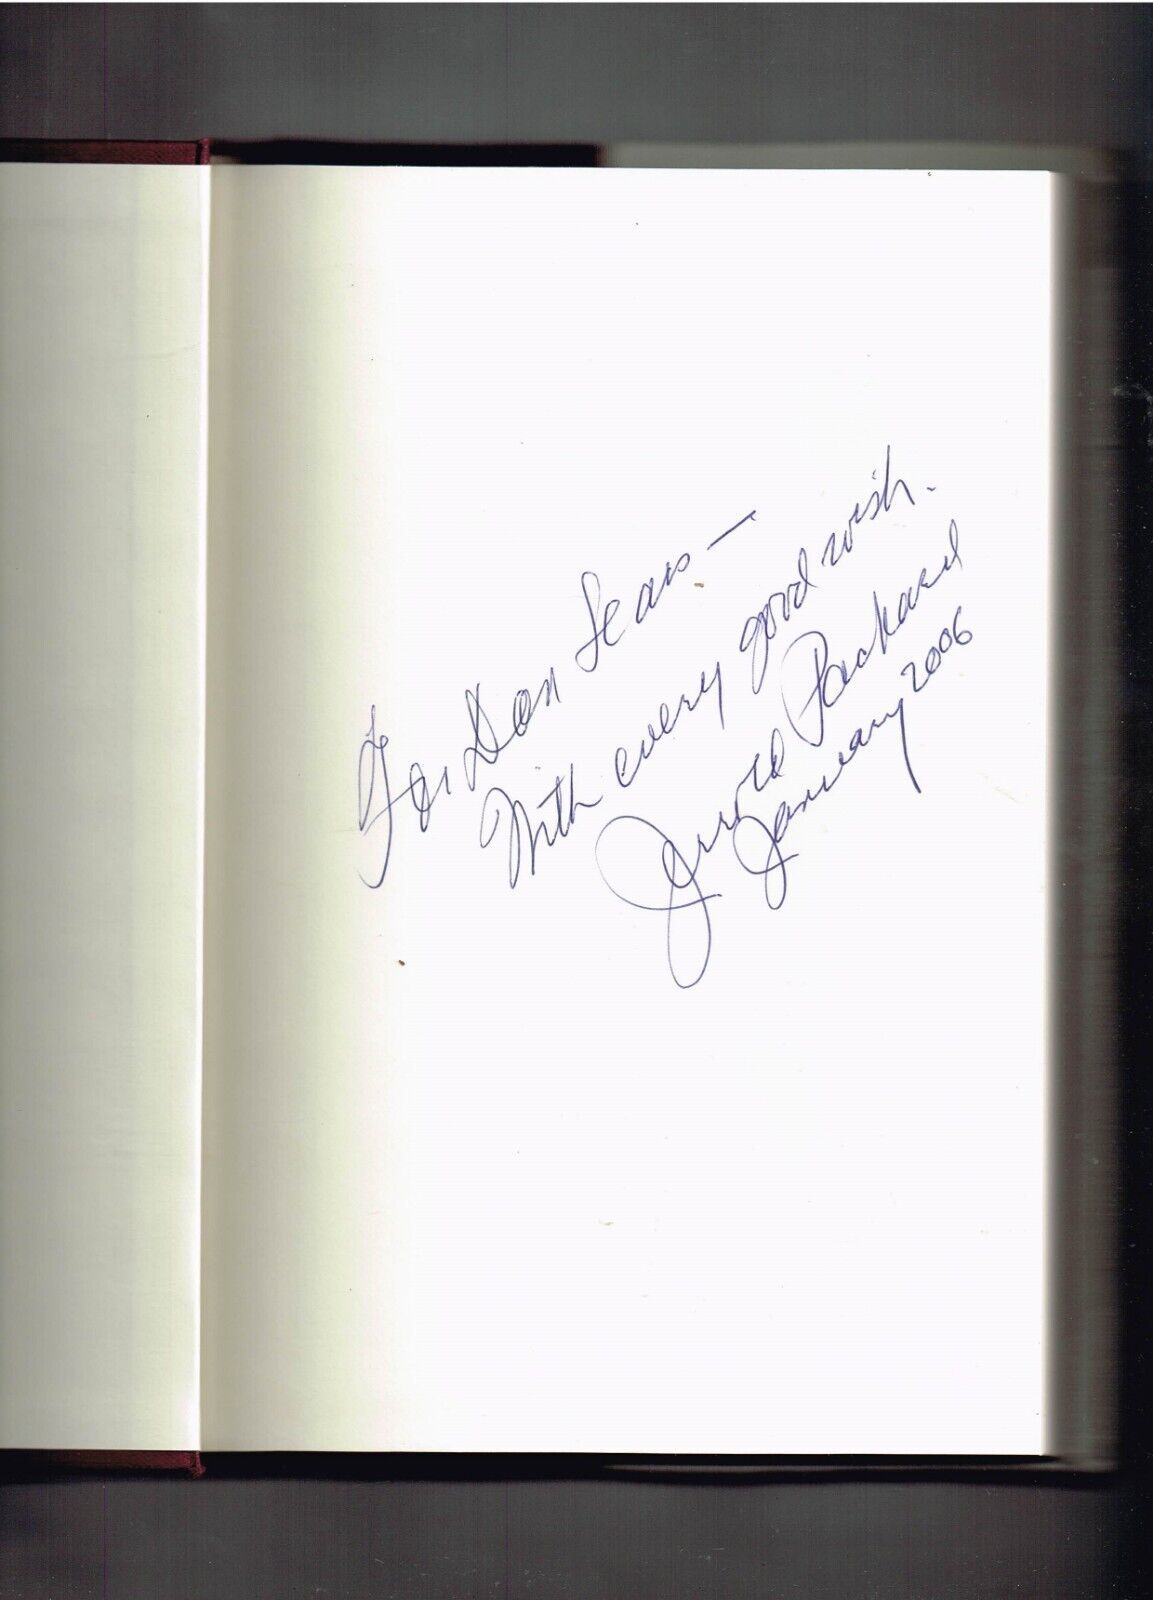 For Don Sears —
With every good wish.
Jerrold Packard
January 2006